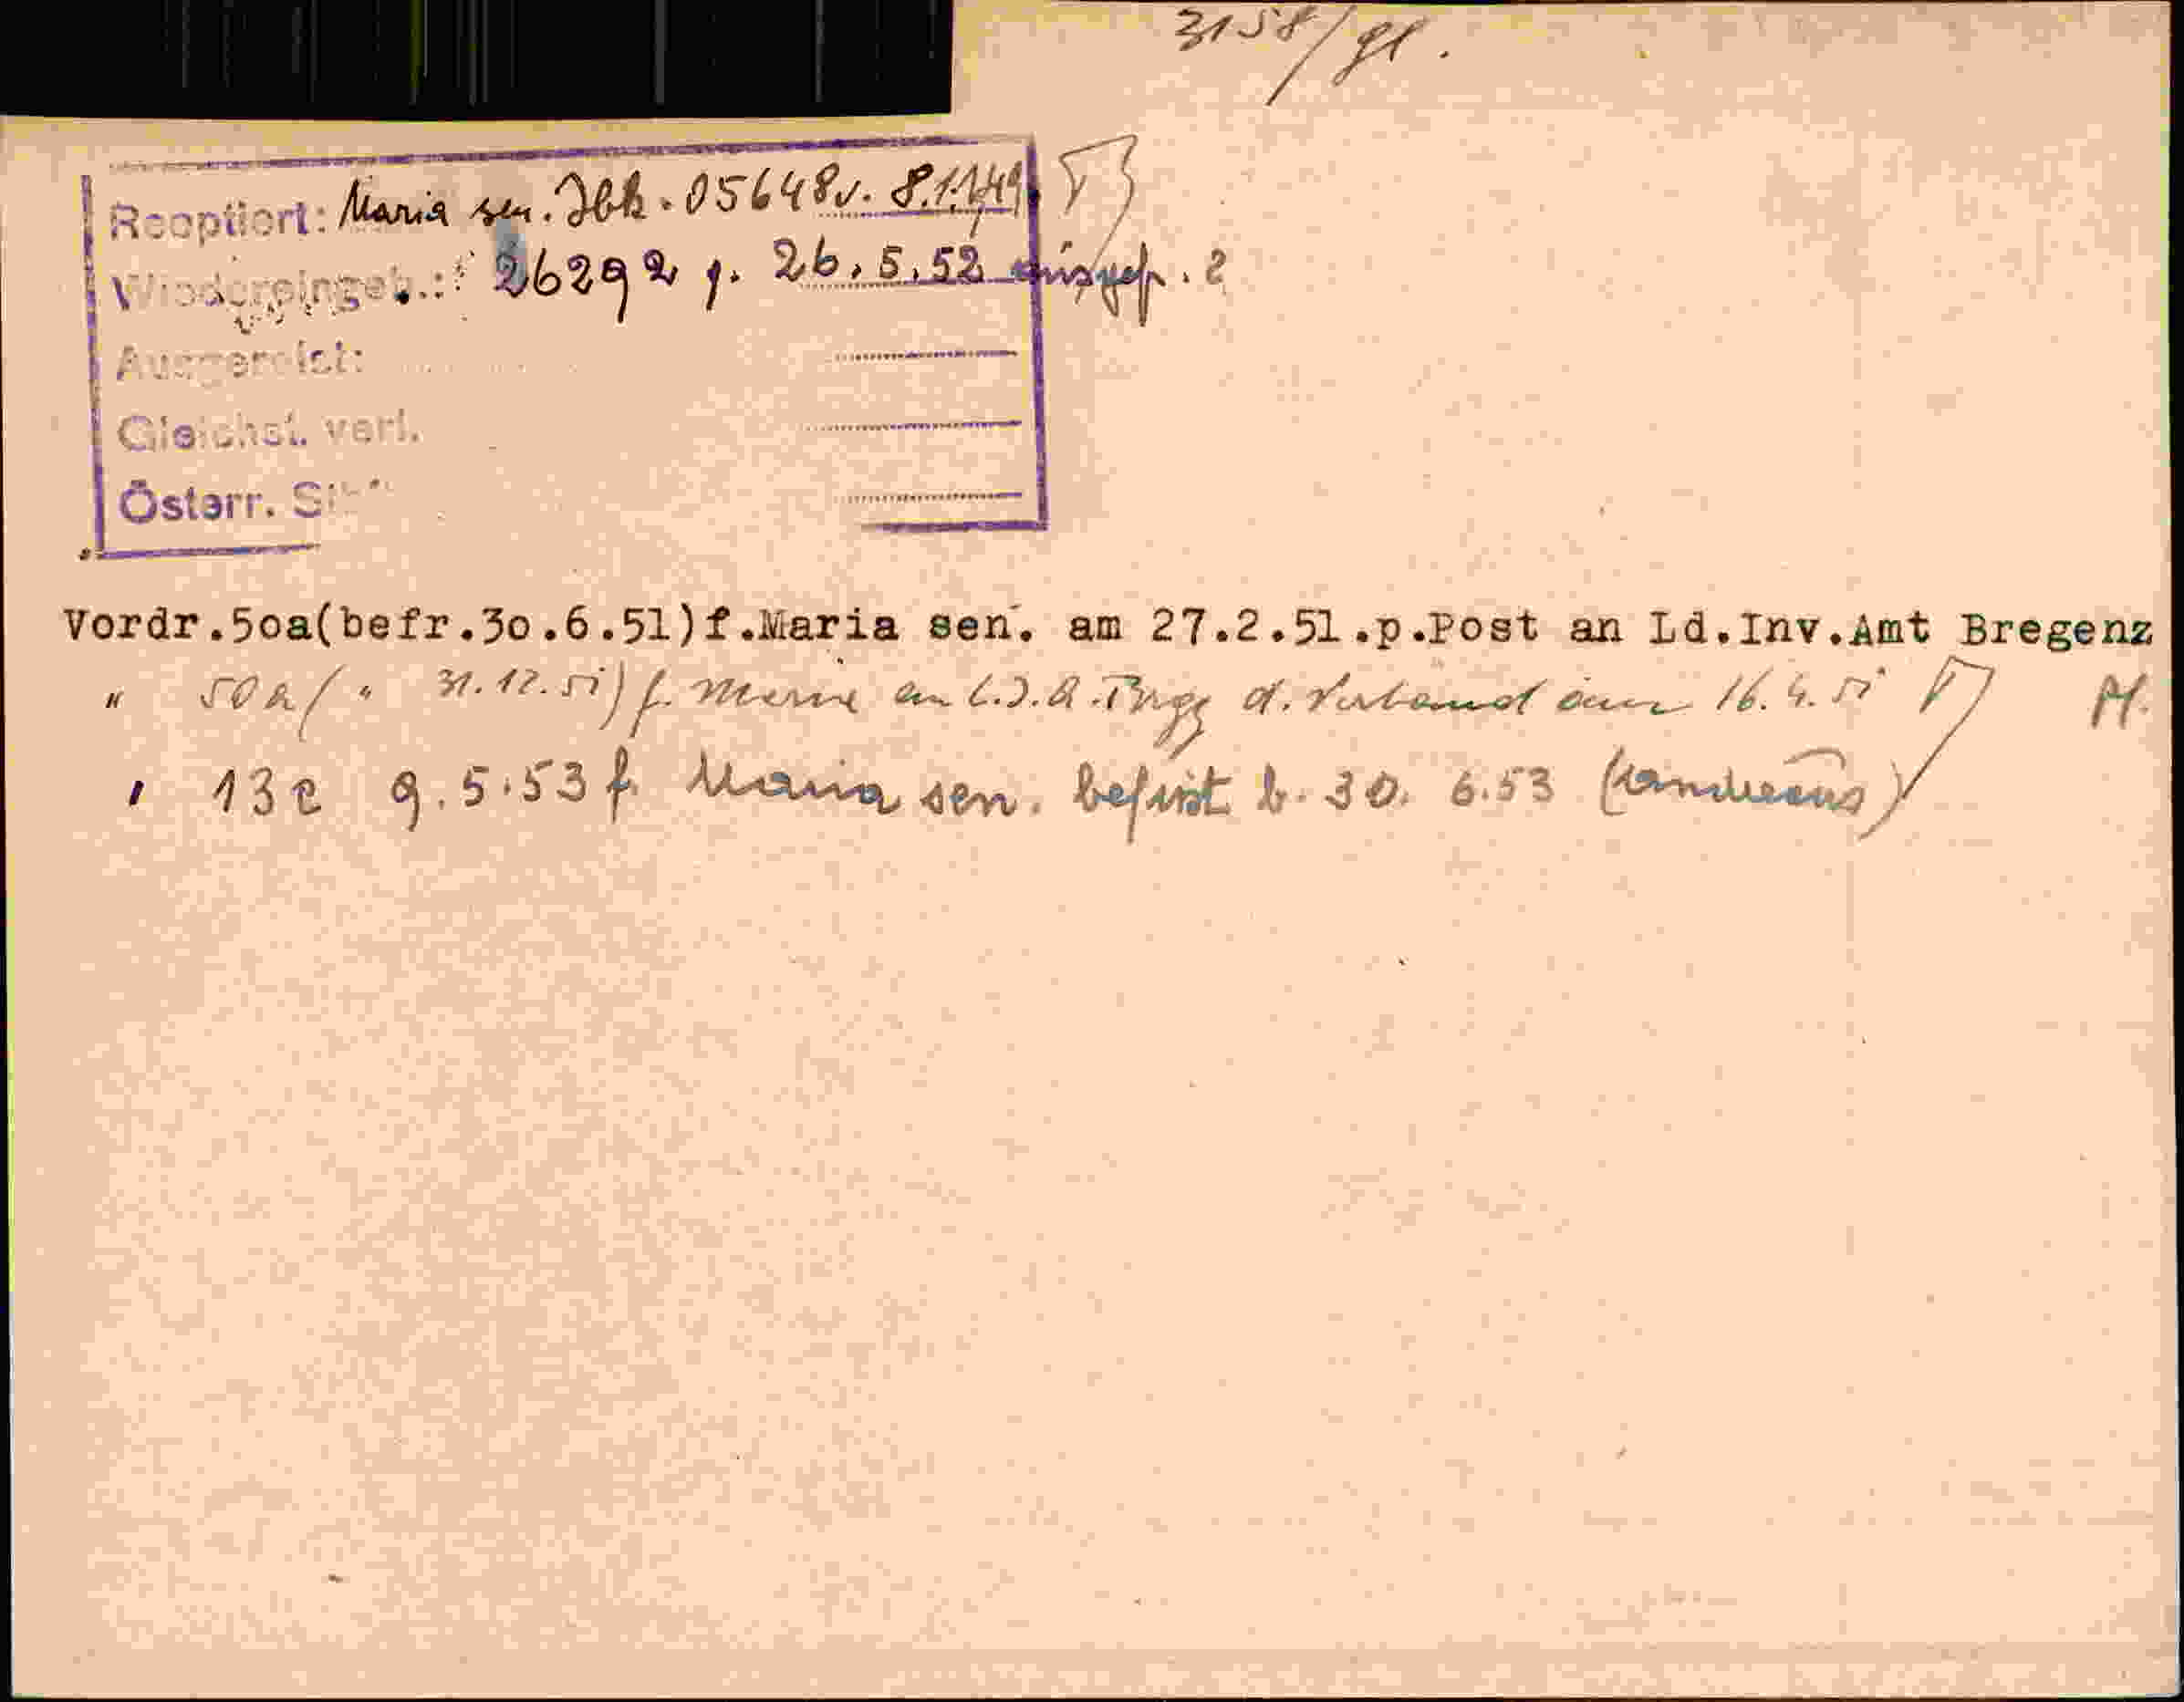 3158/gl.
Reoptiert: Maria sen. Jbk. 05648 v. 8.1.49
Wiedereingeb.: 26292 v. 26.5.52
Ausgereist:
Gleichst. verl.
Österr. St
Vordr.5oa(befr.3o.6.51)f.Maria sen. am 27.2.51.p.Post an Ld.Inv.Amt Bregenz
" 50a ( " 31.12.51) f. Maria an L.I.A. Brgz d. Verband am 16.4.51
" 13c 9.5.53 f. Maria sen. befrist b. 30. 6.53